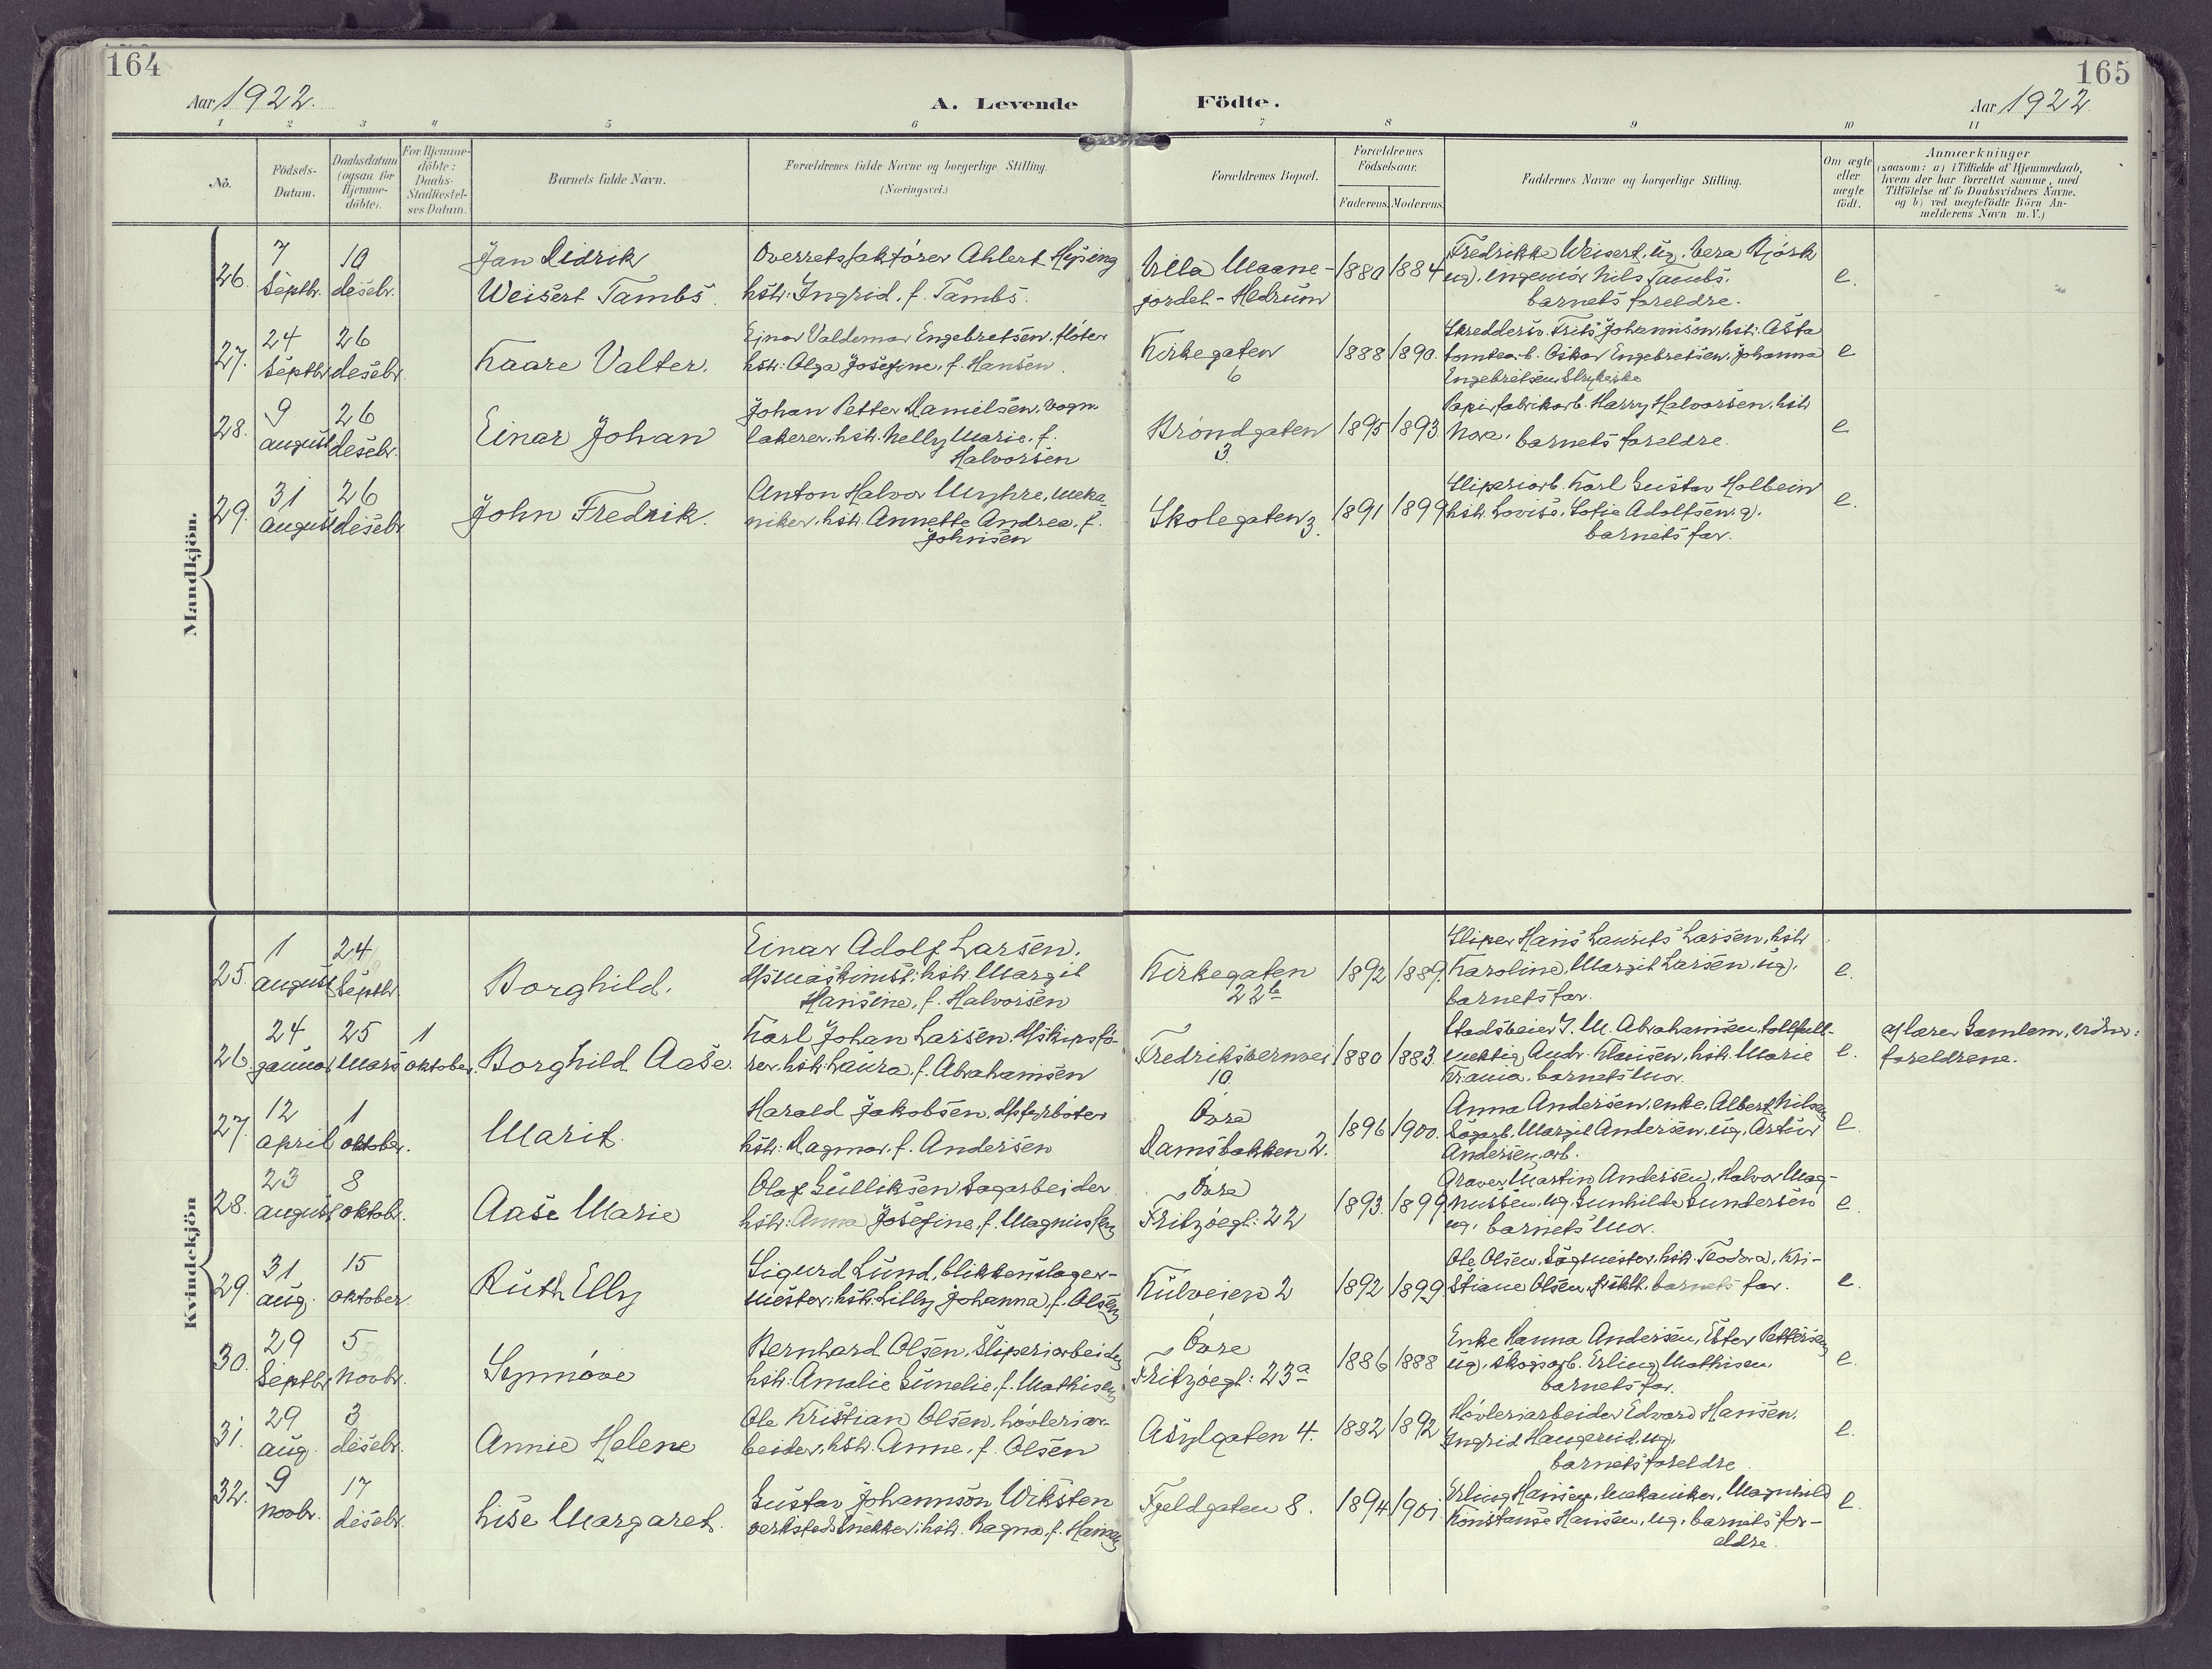 164
165
Aar 1922.
A. Levende
Födte.
Aar 1922
1 2 3 4 5 6 7 8 9 10 11
No.
Födsels-
Datum.
Daabsdatum
(ogsaa for
Hjemme-
döbte).
For Hjemme-
döbte:
Daabs-
Stadfæstel-
ses Datum.
Barnets fulde Navn.
Forældrenes fulde Navne og borgerlige Stilling.
(Næringsvei.)
Forældrenes Bopæl.
Forældrenes
Födselsaar.
Faderens. Moderens.
Faddernes Navne og borgerlige Stilling.
Om ægte
eller
uægte
födt.
Anmærkninger
(saasom: a) i Tilfælde af Hjemmedaab,
hvem der har forrettet samme, med
Tilföielse af to Daabsvidners Navne.
og b) ved uægtefödte Börn An-
melderens Navn m.V.)
Mandkjön.
26.
7
septbr.
10
desebr.
Jan Didrik
Weisert Tambs.
Overretssakförer Ahlert Hysing
hstr: Ingrid, f. Tambs.
Villa Maane-
jordet - Hedrum
1880 1884
Fredrikke Weisert, ug, Vera Bjórk
ug. ingeniór Nils Tambs.
barnets foreldre.
e.
27.
24
septbr
26
desebr
Kaare Valter.
Einar Valdemar Engebretsen, flóter
hstr: Olga Josefine, f. Hansen.
Kirkegaten
6
1888 1890.
Skredders. Frits Johannson, hstr: Asta
tomtearb. Oskar Engebretsen, Johanna
Engebretsen, Strykerske
e
28.
9
august
26
desebr.
Einar Johan
Johan Petter Danielsen, vogn-
lakerer, hstr. Nelly Marie, f.
Halvorsen
Bróndgaten
3.
1895 1893.
Papirfabrikarb. Harry Halvorsen, hstr
Nora, barnets foreldre.
e
29.
31
august
26
desebr
John Fredrik.
Anton Halvor Myhre, meka-
niker, hstr. Annette Andrea, f.
Johnsen
Skolegaten 3.
1891 1899
Sliperiarb. Karl Gustav Holbein
hstr. Lovise, Sofie Adolfsen, g.
barnets far.
e.
Kvindekjön
25.
1
august
24
septbr
Borghild.
Einar Adolf Larsen,
dpsmaskinist; hstr. Margit
Hansine, f. Halvorsen
Kirkegaten
22b
1892 1889.
Sliper Hans Laurits Larsen, hstr
Karoline, Margit Larsen, ug,
barnets far.
e.
26.
24
januar
25
mars
1
oktober.
Borghild Aase.
Karl Johan Larsen, dpskipsfó-
rer, hstr: Laura, f. Abrahamsen
Fredriksvernvei
10.
1880 1883.
Stadsveier J. M. Abrahamsen, tollfull-
mektig Andr. Klausen, hstr. Marie
barnets mor.
e.
af lærer Gamlem, vidner:
foreldrene.
27.
12
april
1
oktober.
Marit.
Harald Jakobsen, dpfyrbóter
hstr: Dagmar, f. Andersen
Óvre
Damsbakken 2.
1896 1900.
Anna Andersen, enke, Albert Nilsen
Sagarb. Margit Andersen, ug, Artur
Andersen, arb.
e.
28.
23
august
8
oktobr.
Aase Marie
Olaf Gulliksen Sagarbeider
hstr: Anna Josefine, f. Magnussen
Óvre
Fritzóegt: 22
1893. 1899
Graver Martin Andersen, Halvor Mag-
nussen, ug, Gunhilda Gundersen
ug, barnets mor.
e.
29.
31
aug.
15
oktober.
Ruth Elly
Sigurd Lund, blikkenslager-
mester, hstr: Lilly Johanna, f. Olsen
Kulveien 2
1892 1899.
Ole Olsen, Sagmester, hstr. Teodora, Kri-
stiane Olsen, barnets far.
e.
30.
29
septbr
5
novbr.
Synnóve
Bernhard Olsen, Sliperiarbeider
hstr: Amalie Gunelie, f. Mathisen
Óvre
Fritzóegt: 23a
1886 1888
Enke Hanna Andersen, Ester Pettersen
ug, skogsarb. Erling Mathisen
barnets far.
e.
31.
29
aug.
3
desebr.
Annie Helene
Ole Kristian Olsen, hóvleriar-
beider, hstr. Anne, f. Olsen
Asylgaten 4.
1882 1892
Hóvleriarbeider Edvard Hansen,
Ingrid Haugerud, ug,
barnets foreldre
e.
32.
9
novbr.
17
desebr.
Lise Margaret.
Gustav Johannson Wiksten
verkstedsnekker; hstr. Ragna, f. Hansen
Fjeldgaten 8.
1894 1901
Erling Hansen, mekaniker, Magnhild
Konstanse Hansen, ug, barnets for-
eldre.
e.